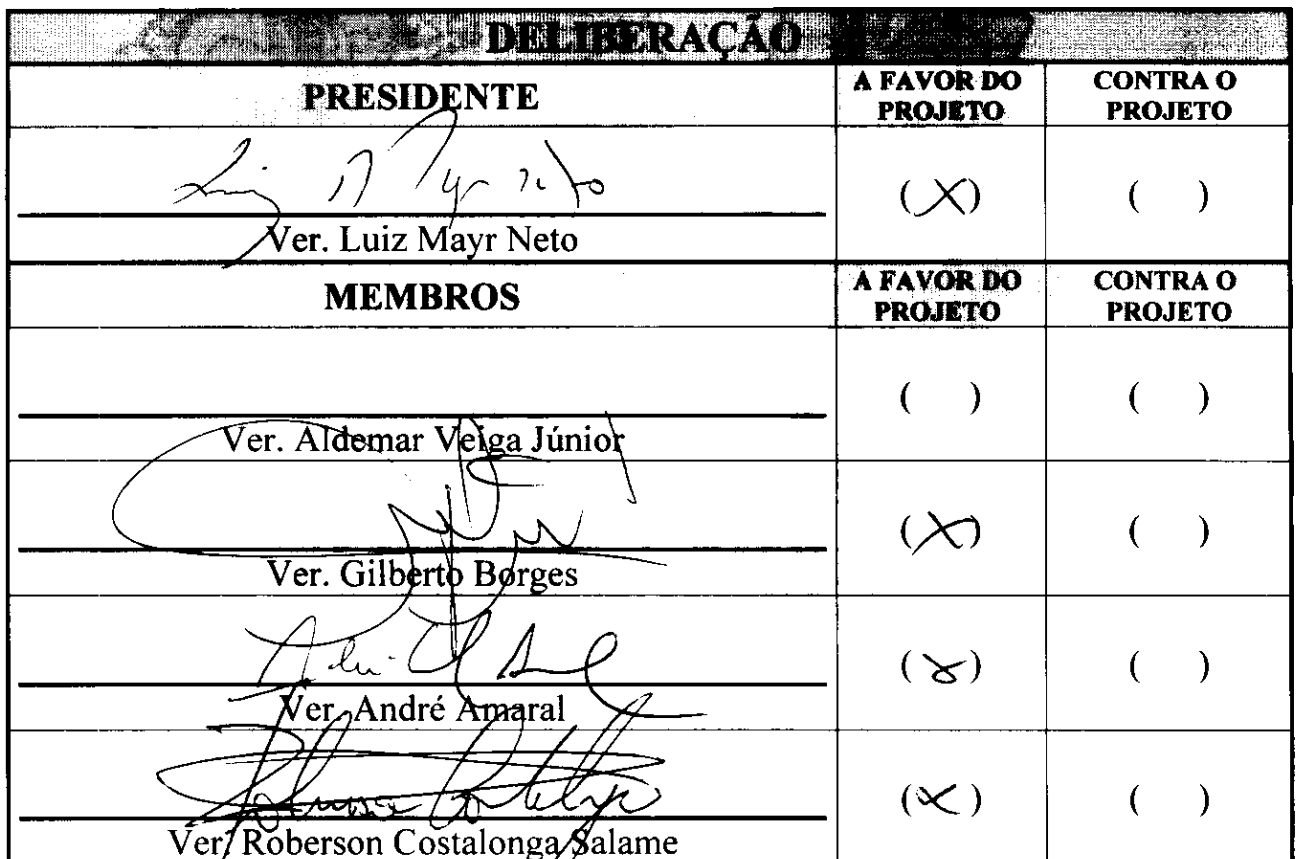 DELIBERAÇÃO
PRESIDENTE
A FAVOR DO PROJETO
CONTRA O PROJETO
(X)
( )
Ver. Luiz Mayr Neto
MEMBROS
A FAVOR DO PROJETO
CONTRA O PROJETO
( )
( )
Ver. Aldemar Veiga Júnior
(X)
( )
Ver. Gilberto Borges
(X)
( )
Ver. André Amaral
(X)
( )
Ver. Roberson Costalonga Salame